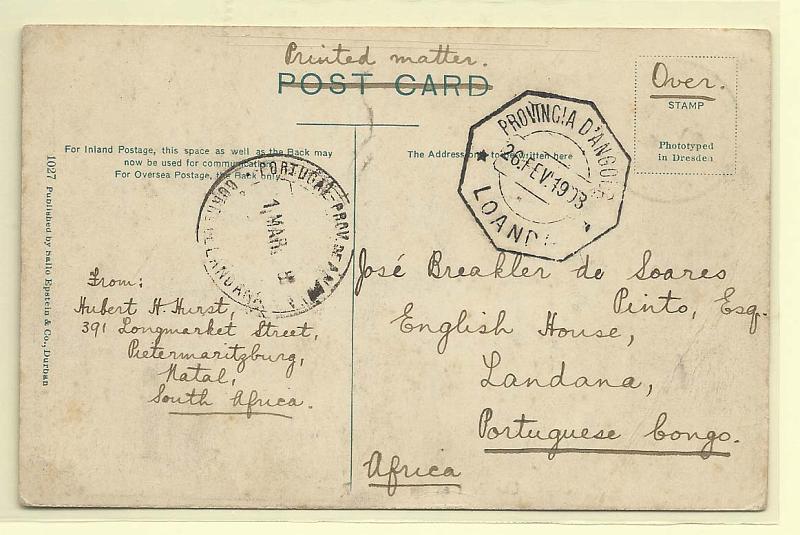 Printed matter.
POST CARD
Over.
STAMP
Phototyped
in Dresden
For Inland Postage, this space as well as the Back may
now be used for communication.
For Oversea Postage, the Back only.
The Address only to be written here
PROVINCIA D'ANGOLA
26.FEV.1908
LOANDA
PORTUGAL-PROV. DE ANGOLA
1 MAR
CORREIO DE LANDANA
1027 Published by Sallo Epstein & Co., Durban
From:
Hubert H. Hurst,
391 Longmarket Street,
Pietermaritzburg,
Natal,
South Africa.
José Breakler de Soares
Pinto, Esq.
English House,
Landana,
Portuguese Congo.
Africa